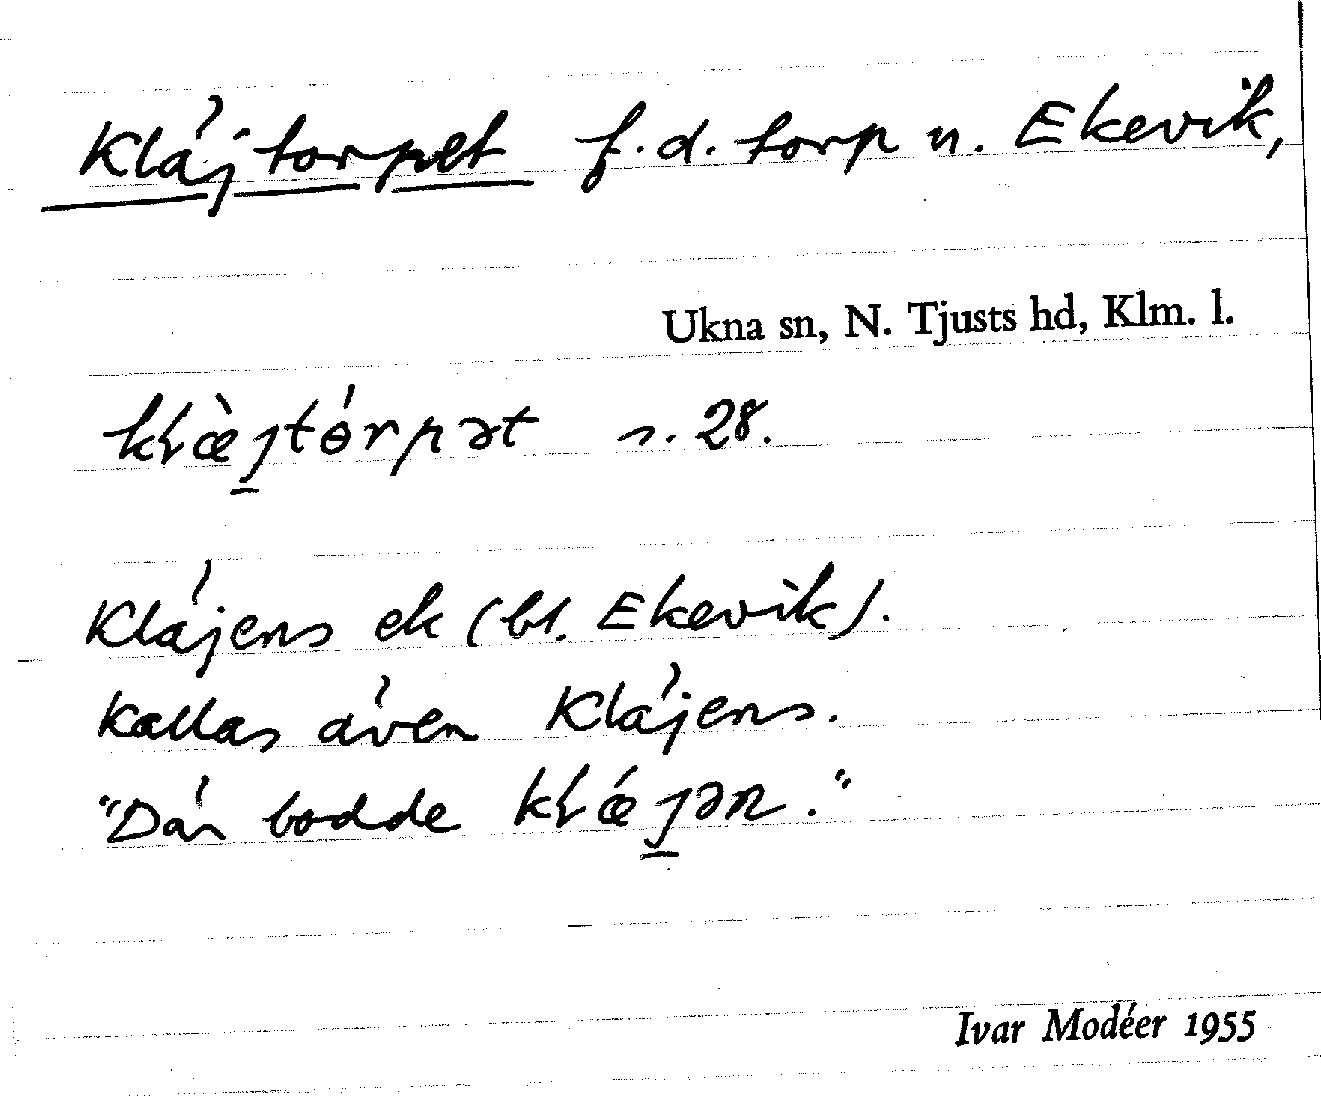 Kläjtorpet f.d. torp u. Ekevik,
Ukna sn, N. Tjusts hd, Klm. l.
s. 28.
Kläjens ek (bl. Ekevik).
kallas även Kläjens.
"Där bodde
Ivar Modéer 1955